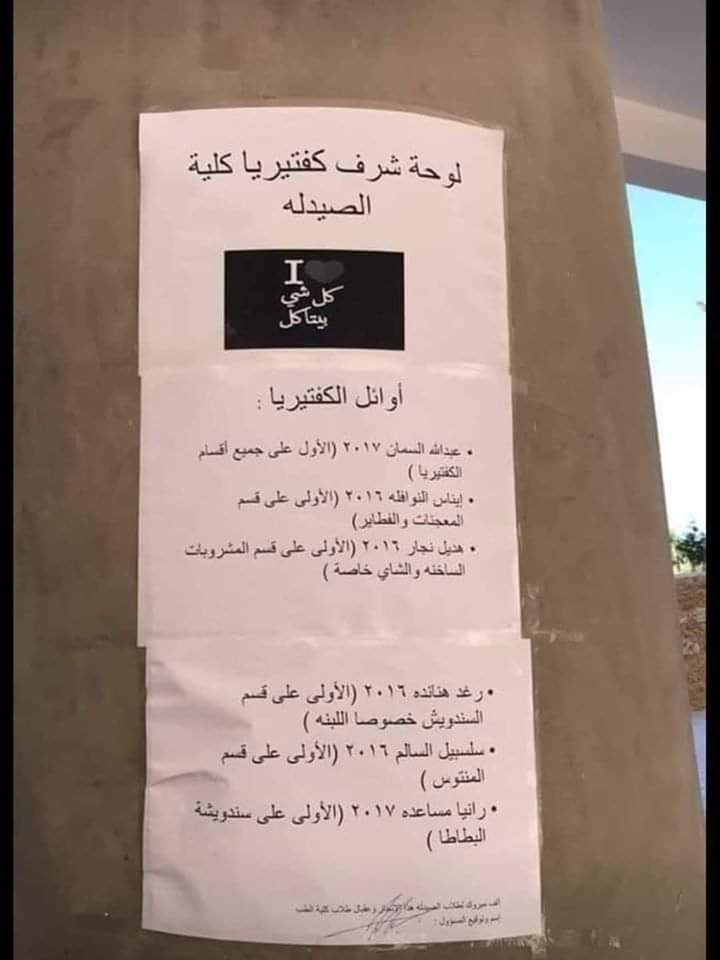 لوحة شرف كفتيريا كلية
الصيدله
I
كل شي
بيتاكل
أوائل الكفتيريا :
• عبدالله السمان ٢٠١٧ (الأول على جميع أقسام
الكفتيريا )
• إيناس النوافله ٢٠١٦ (الأولى على قسم
المعجنات والفطاير)
• هديل نجار ٢٠١٦ (الأولى على قسم المشروبات
الساخنه والشاي خاصة )
• رغد هنانده ٢٠١٦ (الأولى على قسم
السندويش خصوصا اللبنه )
• سلسبيل السالم ٢٠١٦ (الأولى على قسم
المنتوس )
• رانيا مساعده ٢٠١٧ (الأولى على سندويشة
البطاطا )
ألف مبروك لطلاب الصيدله هذا الإنجاز وعقبال طلاب كلية الطب
إسم وتوقيع المسؤول :